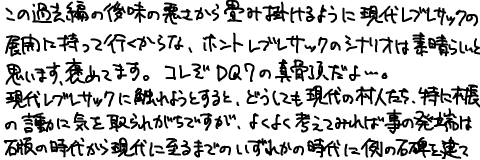 この過去編の後味の悪さから畳み掛けるように現代レブレサックの
展開に持って行くからな、ホントレブレサックのシナリオは素晴らしいと
思います、褒めてます。コレぞDQ7の真骨頂だよ…。
現代レブレサックに触れようとすると、どうしても現代の村人たち、特に村長
の言動に気を取られがちですが、よくよく考えてみれば事の発端は
石版の時代から現代に至るまでのいずれかの時代に例の石碑を建て